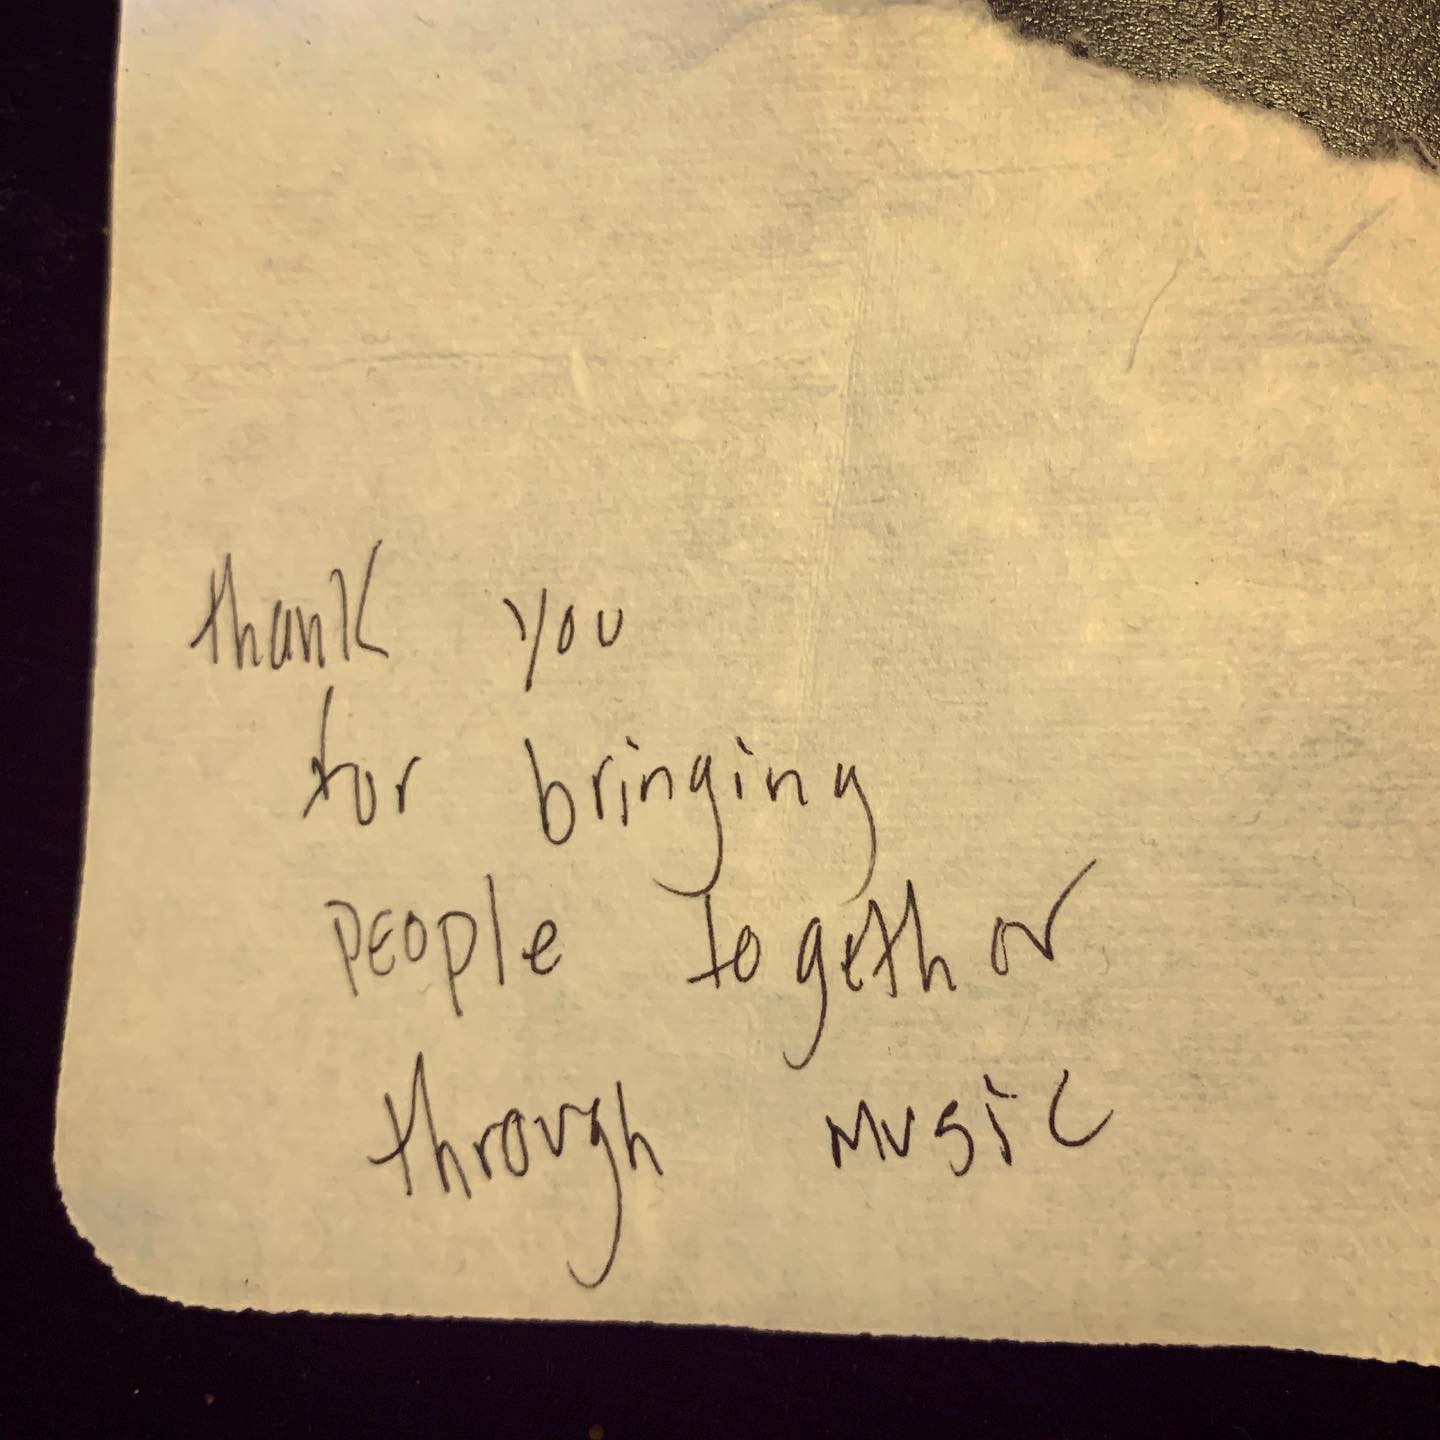 thank you
for bringing
people together
through music